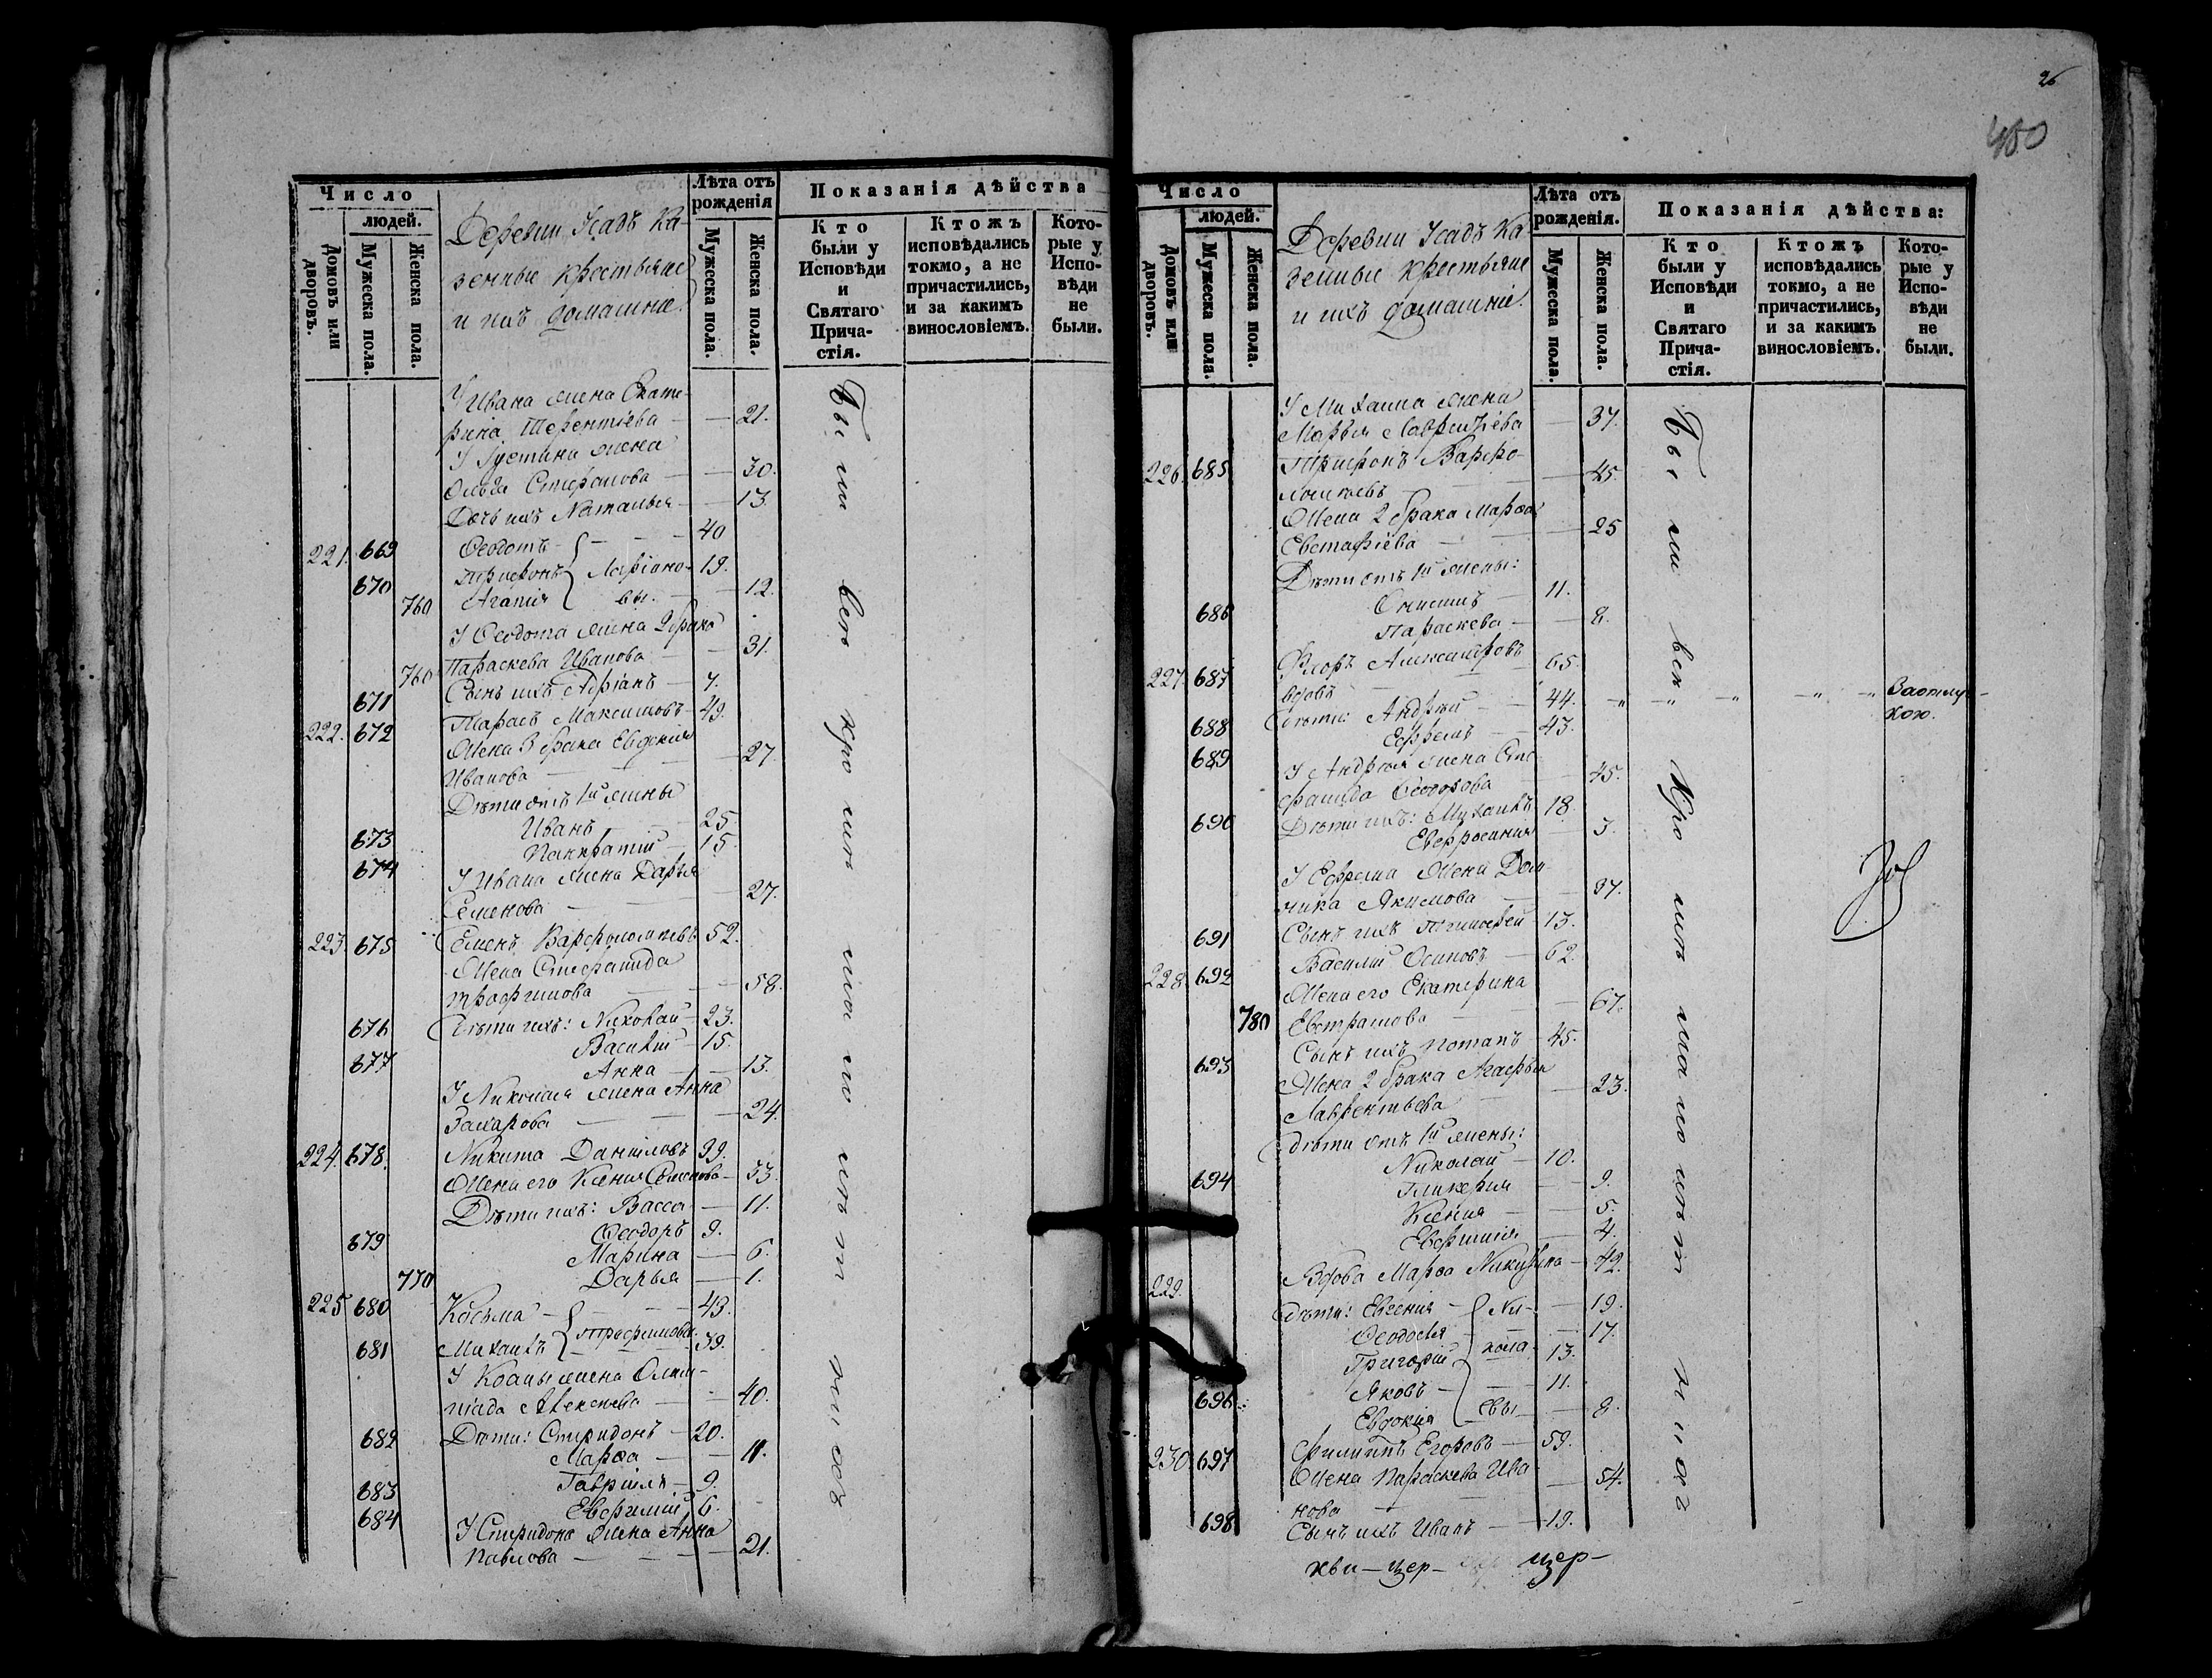 Число
людей.
Домовъ или дворовъ.
Мужеска пола.
Женска пола.
Деревни Усадъ ка-
зенные крестьяне
и ихъ домашніе.
Лѣта отъ рожденія
Мужеска пола.
Женска пола.
Показанія дѣйства
Кто были у Исповѣди и Святаго Прича-стія.
Ктожъ исповѣдались токмо, а не причастились, и за какимъ винословіемъ.
Кото-рые у Испо-вѣди не были.
У Ивана жена Екате-
рина Терентіева — — 21.
У Іустина жена
Ольга Стефанова — — 30.
Дочь ихъ Наталья — — 13.
221. 669 Ѳеодотъ — — — 40
670 Трифонъ Ларіоно- 19.
760 Агапія вы. — — 12.
У Ѳеодота жена 2 брака
760 Параскева Иванова — — 31.
671 Сынъ ихъ Адріанъ — 7.
222. 672 Тарасъ Максимовъ — 49.
Жена 3 брака Евдокія
Иванова — — — 27.
Дѣти отъ 1й жены
673 Иванъ — 25
674 Панкратій — 15.
У Ивана жена Дарья
Семенова — — 27.
223. 675 Семенъ Варфоломѣевъ 52.
Жена Стефанида
Трофимова — — 58.
676 Дѣти ихъ: Николай — 23.
677 Василій — 15.
Анна — — 13.
У Николая жена Анна
Захарова — — 24.
224. 678. Никита Даниловъ 39.
Жена его Ксенія Семенова — 33.
Дѣти ихъ: Васса — 11.
679 Ѳеодоръ 9.
Марина — 6.
770 Дарья — 1.
225 680 Косьма — — — 43.
681 Михаилъ Трофимовы. 39.
У Косьмы жена Олим-
піада Алексѣева — — 40.
682 Дѣти: Спиридонъ — 20.
Марѳа — — 11.
683 Гавріилъ — 9.
684 Евфимій 6.
У Спиридона жена Анна
Павлова — — — 21.
Были всѣ кро мѣ ма ло лѣт ныхъ
26
450
Число
людей.
Домовъ или дворовъ.
Мужеска пола.
Женска пола.
Деревни Усадъ ка-
зенные крестьяне
и ихъ домашніе.
Лѣта отъ рожденія.
Мужеска пола.
Женска пола.
Показанія дѣйства:
Кто были у Исповѣди и Святаго Прича-стія.
Ктожъ исповѣдались токмо, а не причастились, и за какимъ винословіемъ.
Кото-рые у Испо-вѣди не были.
У Михаила жена
Марья Лаврентіева — 37.
226. 685 Трифонъ Варфо-
ломѣевъ — — 45.
Жена 2 брака Марѳа
Евстафіева — — 25
Дѣти отъ 1й жены:
686 Онисимъ — 11.
Параскева — — 8.
227. 687 Флоръ Александровъ
вдовъ — — 65.
688 Дѣти: Андрей — 44. Заотлуч-
кою.
689 Ефремъ — 43.
У Андрея жена Сте-
фанида Ѳеодорова — 45.
690 Дѣти ихъ: Михаилъ 18.
Евфросинія — 3.
У Ефрема жена Дом-
ника Якимова — 37.
691 Сынъ ихъ Тимоѳей — 13.
228. 692 Василій Осиповъ — 62.
Жена его Екатерина
780 Евстратова — — 67.
693 Сынъ ихъ Потапъ — 45.
Жена 2 брака Агафья
Лаврентьева — — 23.
Дѣти отъ 1й жены:
694 Николай — 10.
Гликерія — — 9.
Ксенія — — 5.
Евфимія — 4.
229. Вдова Марѳа Никитина — 42.
Дѣти: Евгенія — Ни- — 19.
Ѳеодосія — — 17.
Григорій кола- 13.
696 Яковъ — — 11.
Евдокія евы — 8.
230. 697 Филиппъ Егоровъ — 59.
Жена Параскева Ива-
нова — — 54.
698 Сынъ ихъ Иванъ — 19.
Были всѣ кро мѣ ма ло лѣт ныхъ
кви — цер — цер —